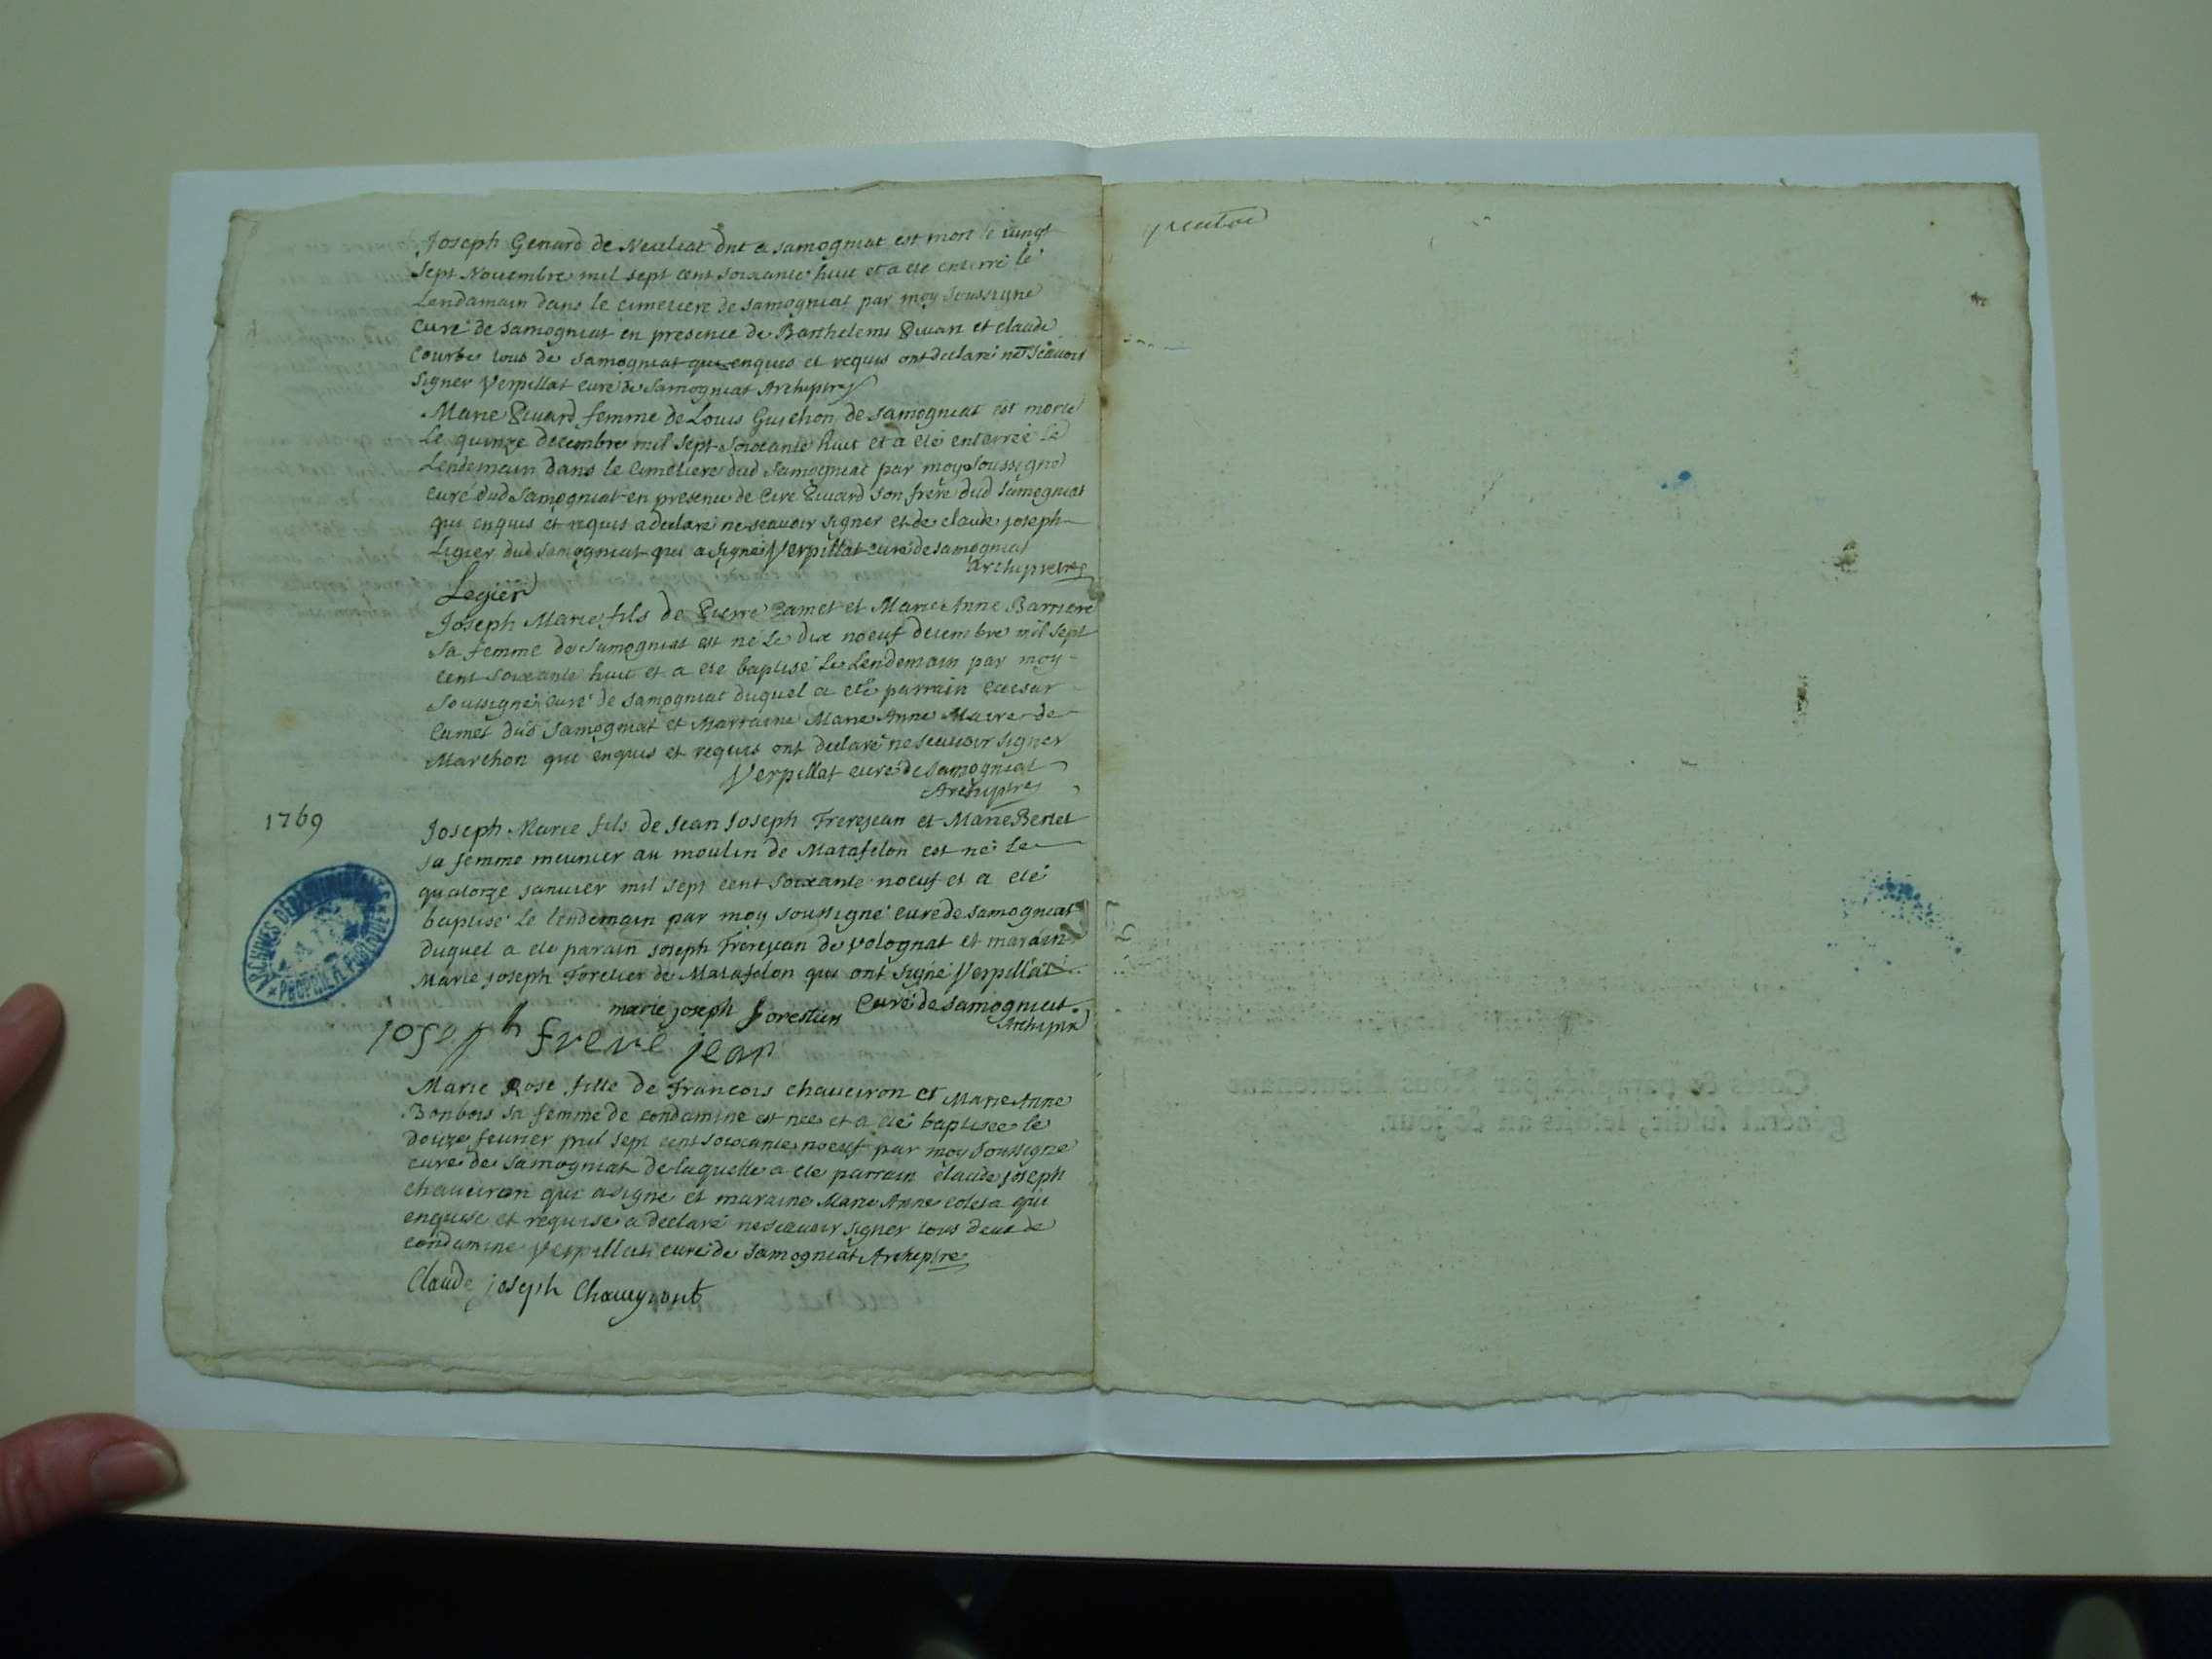 Joseph Genard de Neuleat dnt a samogniat est mort le vingt
sept Novembre mil sept cent soixante huit et a ete enterré le
Lendamain dans le cimetiere de samogniat par moy soussigné
curé de samogniat en presence de Barthelemi et claude
Courbe tous de samogniat qui enquis et requis ont declaré ne sçavoir
signer Verpillat curé de Samogniat Archiptre
Marie femme de Louis Guichon de samogniat est morte
Le quinze decembre mil sept soixante huit et a eté enterrée le
Lendemain dans le cimetiere dud samogniat par moy soussigné
curé dud Samogniat en presence de son frere dud samogniat
qui enquis et requis a declaré ne scavoir signer et de claude joseph
Ligier dud samogniat qui a signé Verpillat curé de samogniat
Archipretre
Legier
Joseph Marie fils de Pierre Camet et Marie Anne Barriere
sa femme de samogniat est né le dix noeuf decembre mil sept
cent soixante huit et a ete baptisé le Lendemain par moy
soussigné curé de samogniat duquel a eté parrain Caesar
Camet dud samogniat et Marraine Marie Anne Maire de
Marchon qui enquis et requis ont declaré ne scavoir signer
Verpillat curé de samogniat
Archiptre
1769
Joseph Marie fils de Jean Joseph Frerejean et Marie Bertet
sa femme meunier au moulin de Matafelon est né le
quatorze janvier mil sept cent soixante noeuf et a eté
baptisé le lendemain par moy soussigné curé de samogniat
duquel a ete parain joseph Frerejean de volognat et marain
Marie joseph Foretier de Matafelon qui ont signé Verpillat
marie joseph forestier Curé de samogniat
Archiptre
joseph frere jean
Marie Rose fille de Francois chaveiron et Marie Anne
Bonbois sa femme de condamine est nee et a eté baptisee le
douze fevrier mil sept cent soixante noeuf par moy soussigné
curé de samogniat de laquelle a ete parrain claude joseph
chaveiron qui a signe et maraine Marie Anne coleta qui
enquise et requise a declaré ne scavoir signer tous deux de
condamine Verpillat curé de samogniat Archiptre
Claude joseph Chaveyront
ARCHIVES DÉPARTEMENTALES
PROPRIÉTÉ PUBLIQUE